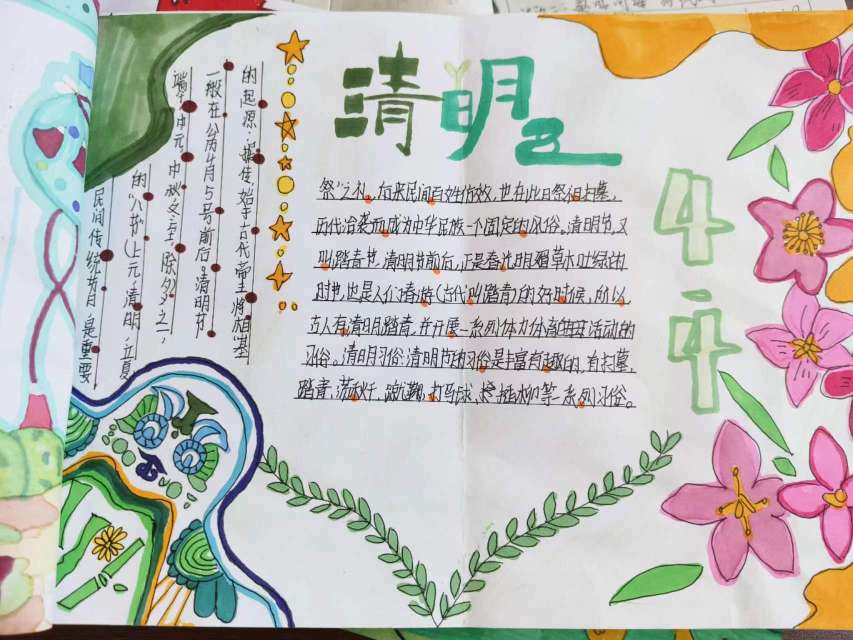 清明
4.4
祭"之礼，后来民间百姓仿效，也在此日祭祖扫墓，
历代沿袭而成为中华民族一个固定的风俗。清明节，又
叫踏青节，清明节前后，正是春光明媚草木吐绿的
时节，也是人们春游(古代叫踏青)的好时候，所以
古人有清明踏青，并开展一系列体育活动的
习俗。清明习俗：清明节的习俗是丰富有趣的，有扫墓、
踏青、荡秋千、蹴鞠、打马球、插柳等一系列习俗。
的起源：据传始于古代帝王将相"墓
一般在公历4月5号前后。清明节
端午、中元、中秋冬至、除夕)之一，
的"八节"(上元、清明、立夏
民间传统节日，是重要